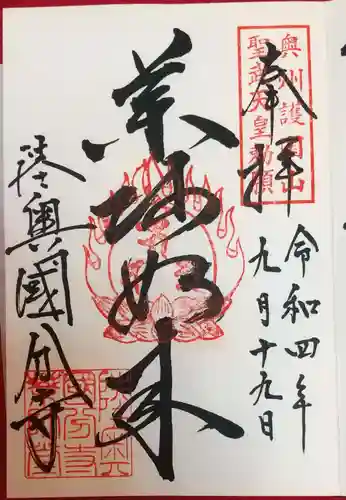 奥州護國山
聖武天皇勅願
奉拝
令和四年
九月十九日
薬師如来
陸奥國分寺